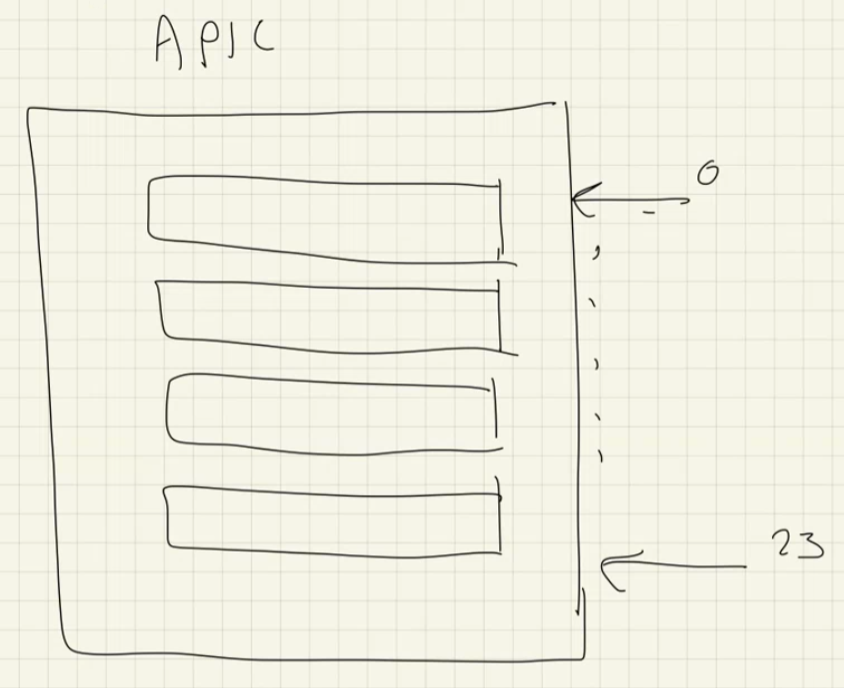 APIC
0
23